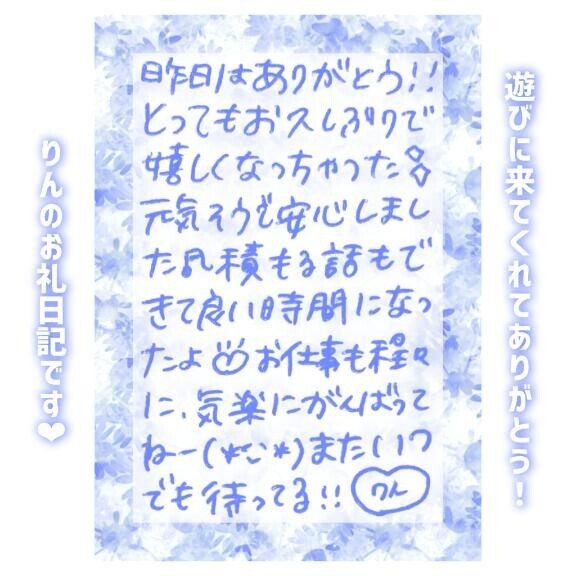 遊びに来てくれてありがとう！
昨日はありがとう!!
とってもお久しぶりで
嬉しくなっちゃった
元気そうで安心しまし
た積もる話もで
きて良い時間になっ
たよ お仕事も程々
に、気楽にがんばって
ねー(*^^*)またいつ
でも待ってる!!
りん
りんのお礼日記です❤